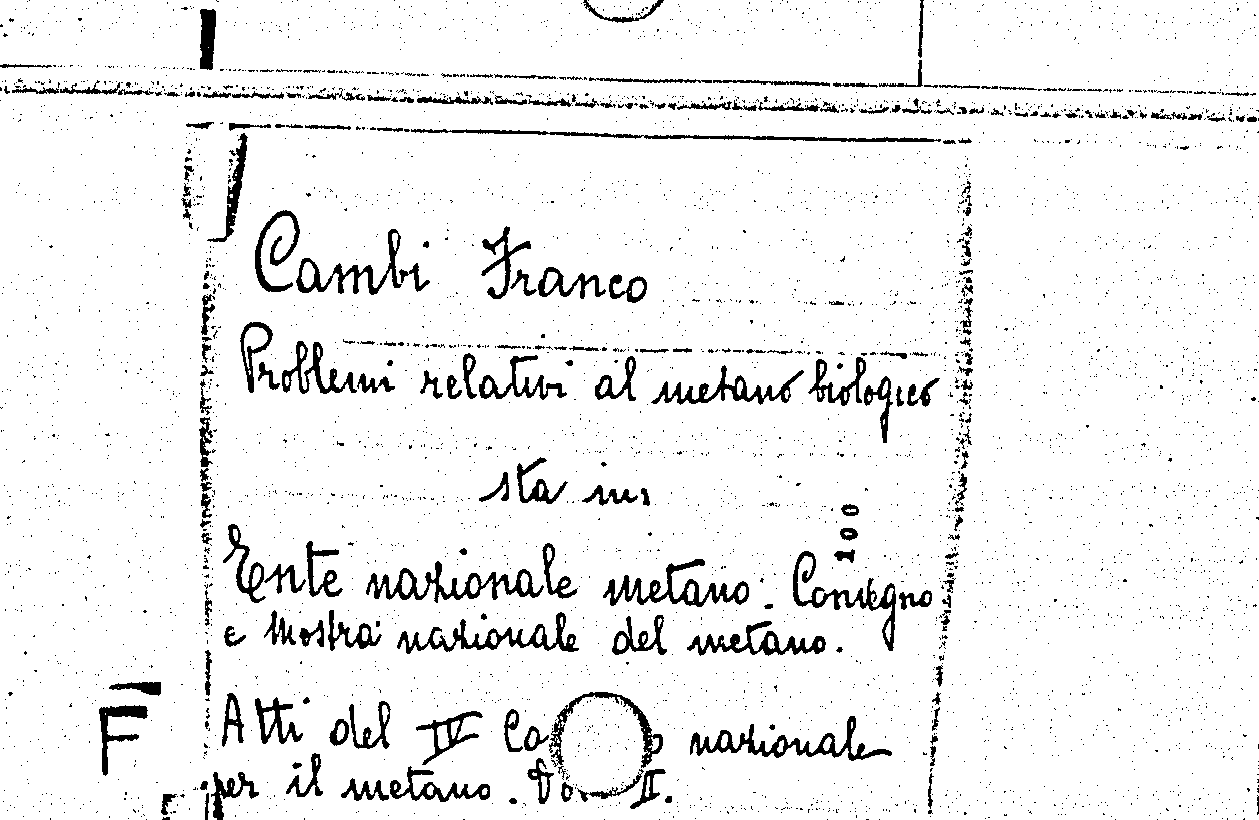 Cambi Franco
Problemi relativi al metano biologico
sta in:
100
Ente nazionale metano. Convegno
e Mostra nazionale del metano.
F
Atti del IV nazionale
per il metano. Vol. II.